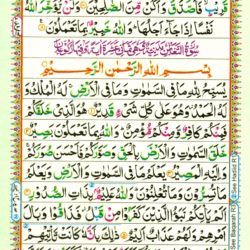 قَرِيْبٍ فَاَصَّدَّقَ وَاَكُنْ مِّنَ الصّٰلِحِيْنَ وَلَنْ يُّؤَخِّرَ اللّٰهُ
نَفْسًا اِذَا جَآءَ اَجَلُهَا وَاللّٰهُ خَبِيْرٌۢ بِمَا تَعْمَلُوْنَ
سُوْرَةُ التَّغَابُنِ
بِسْمِ اللّٰهِ الرَّحْمٰنِ الرَّحِيْمِ
يُسَبِّحُ لِلّٰهِ مَا فِى السَّمٰوٰتِ وَمَا فِى الْاَرْضِ لَهُ الْمُلْكُ وَ
لَهُ الْحَمْدُ وَهُوَ عَلٰى كُلِّ شَىْءٍ قَدِيْرٌ هُوَ الَّذِىْ خَلَقَكُمْ
فَمِنْكُمْ كَافِرٌ وَّمِنْكُمْ مُّؤْمِنٌ وَاللّٰهُ بِمَا تَعْمَلُوْنَ بَصِيْرٌ
خَلَقَ السَّمٰوٰتِ وَالْاَرْضَ بِالْحَقِّ وَصَوَّرَكُمْ فَاَحْسَنَ صُوَرَكُمْ
وَاِلَيْهِ الْمَصِيْرُ يَعْلَمُ مَا فِى السَّمٰوٰتِ وَالْاَرْضِ وَيَعْلَمُ
مَا تُسِرُّوْنَ وَمَا تُعْلِنُوْنَ وَاللّٰهُ عَلِيْمٌۢ بِذَاتِ الصُّدُوْرِ
اَلَمْ يَاْتِكُمْ نَبَؤُا الَّذِيْنَ كَفَرُوْا مِنْ قَبْلُ فَذَاقُوْا وَبَالَ
اَمْرِهِمْ وَلَهُمْ عَذَابٌ اَلِيْمٌ ذٰلِكَ بِاَنَّهٗ كَانَتْ تَّاْتِيْهِمْ
Baqarah R
See Hadid R